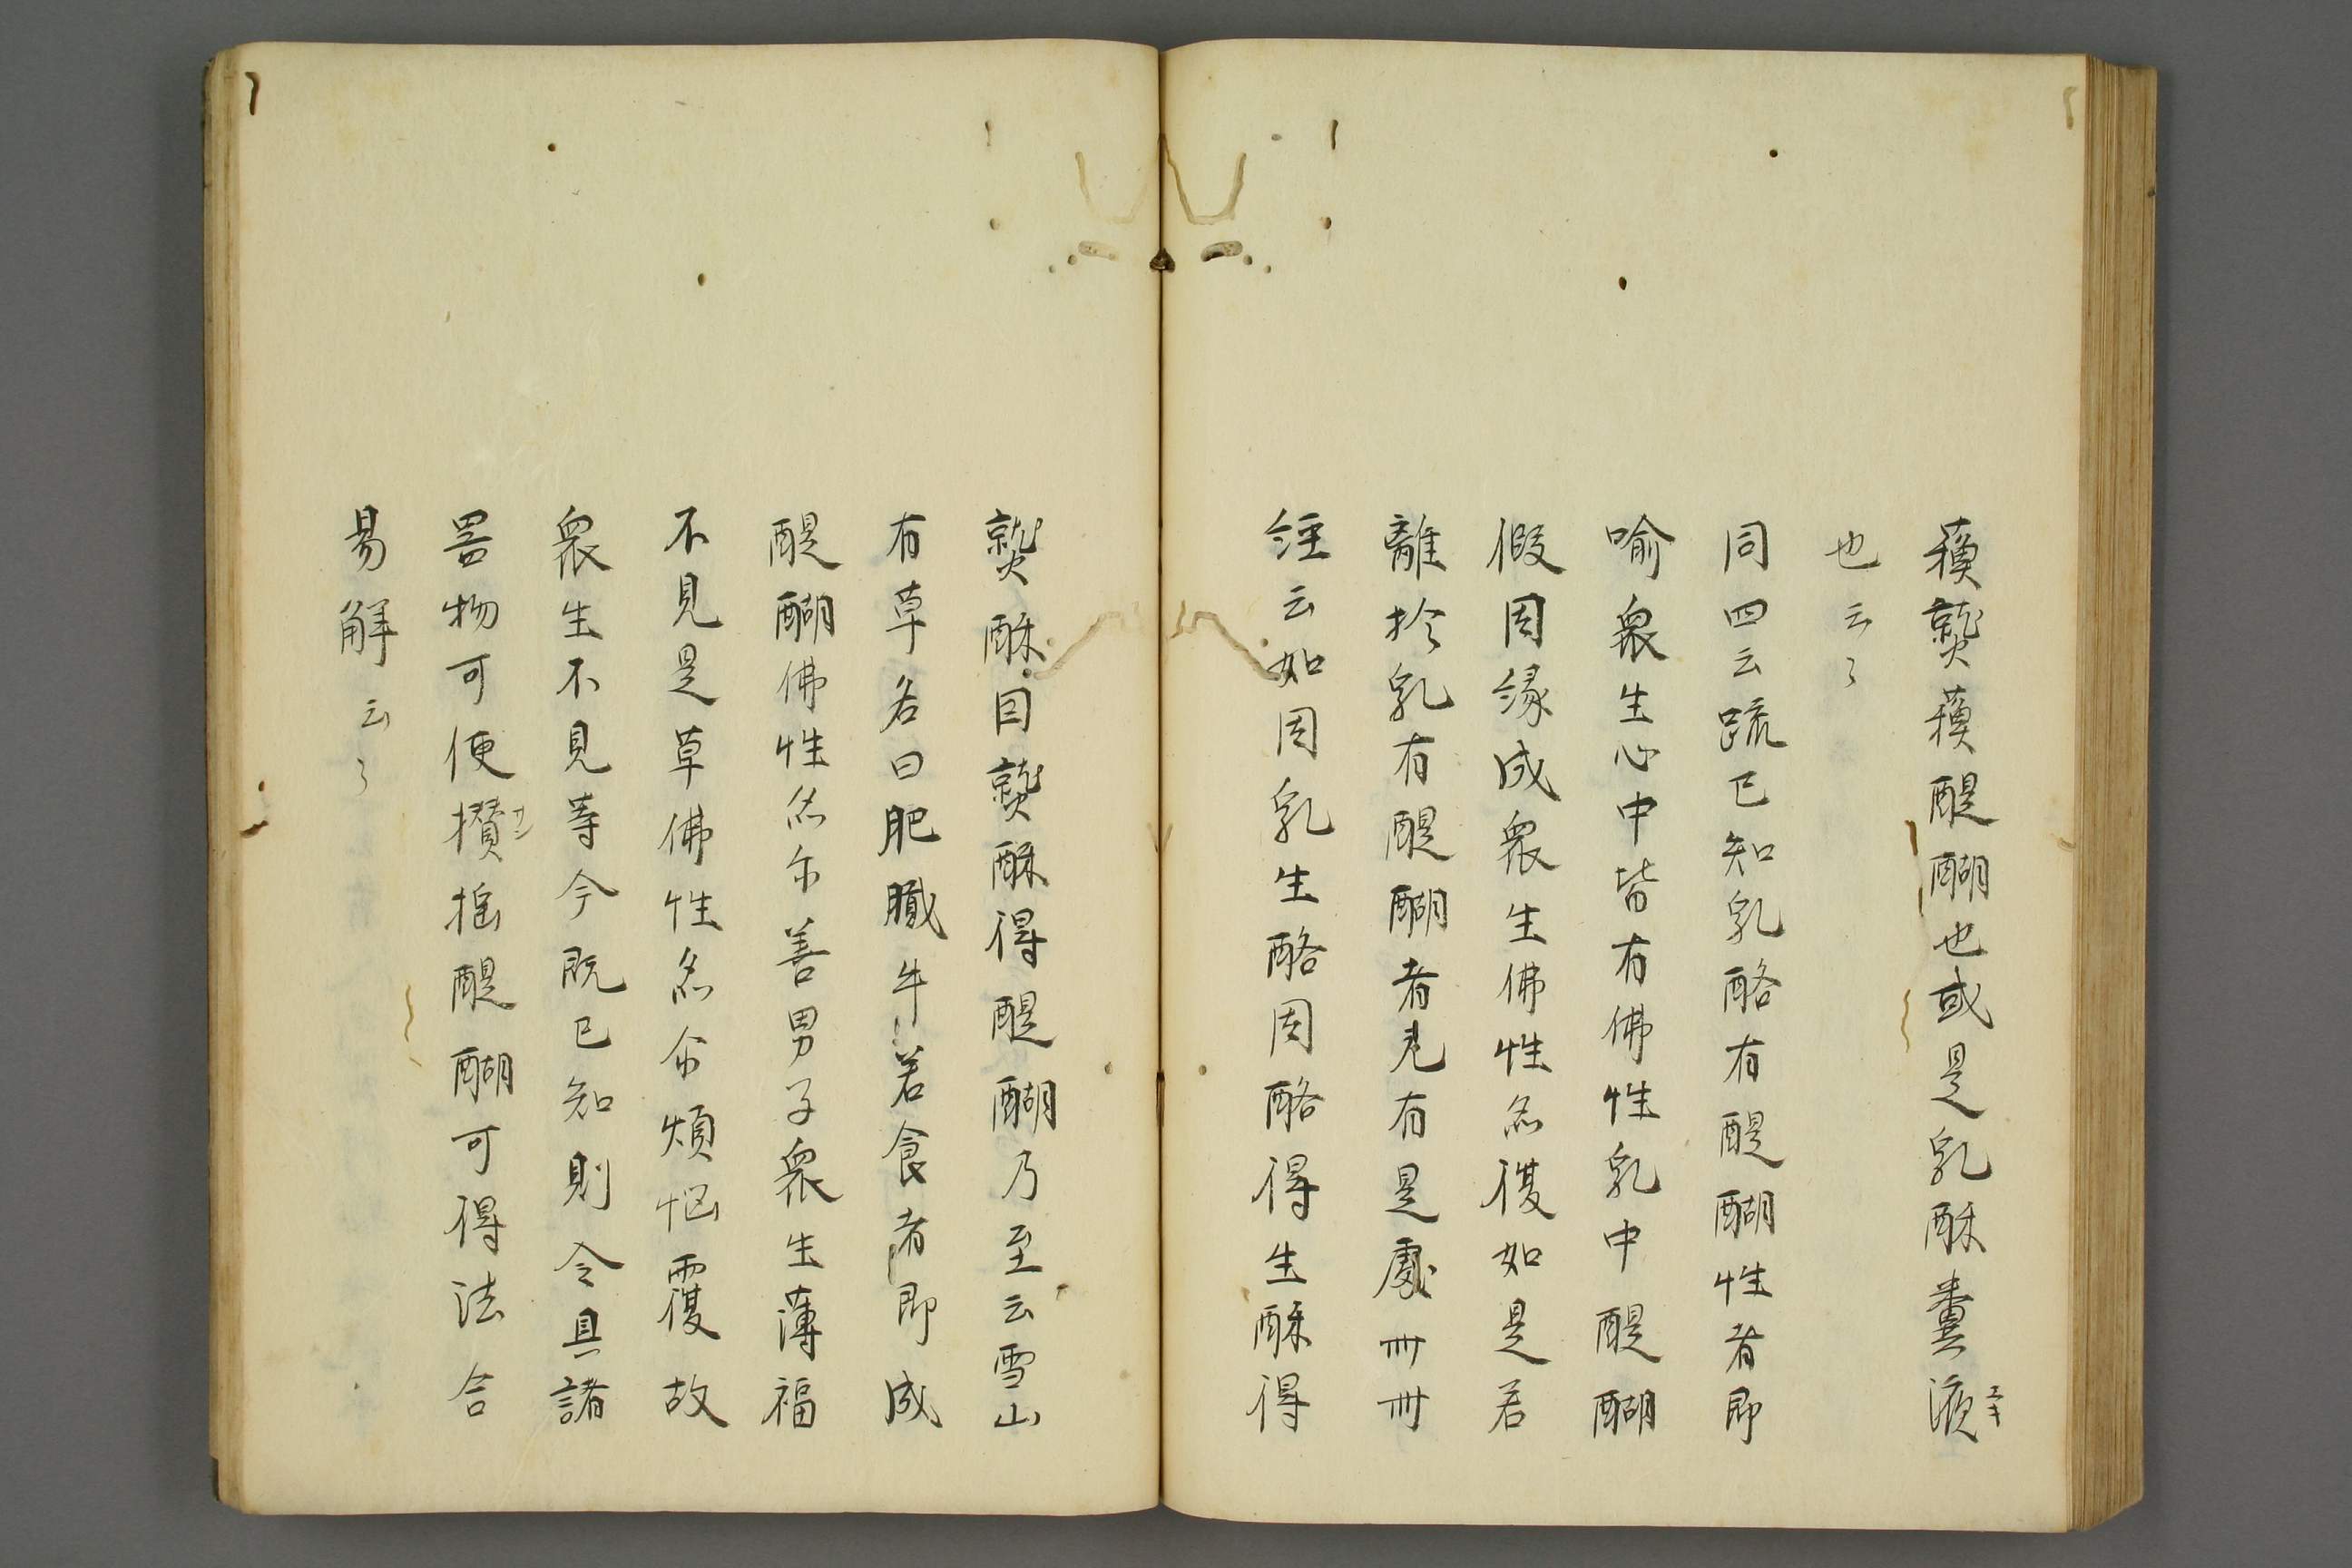 蘓熟蘓醍醐也或是乳酥糞液エキ
也云〻
同四云疏已知乳酪有醍醐性者即
喻衆生心中皆有佛性乳中醍醐
假因縁成衆生佛性亦復如是若
離於乳有醍醐者旡有是處卌卌
経云如因乳生酪因酪得生酥得
熟酥因熟酥得醍醐乃至云雪山
有草名曰肥膩牛若食者即成
醍醐佛性亦尓善男子衆生薄福
不見是草佛性亦尓煩悩覆故
衆生不見等今既已知則令具諸
器物可使攢サン揺醍醐可得法合
易解云〻